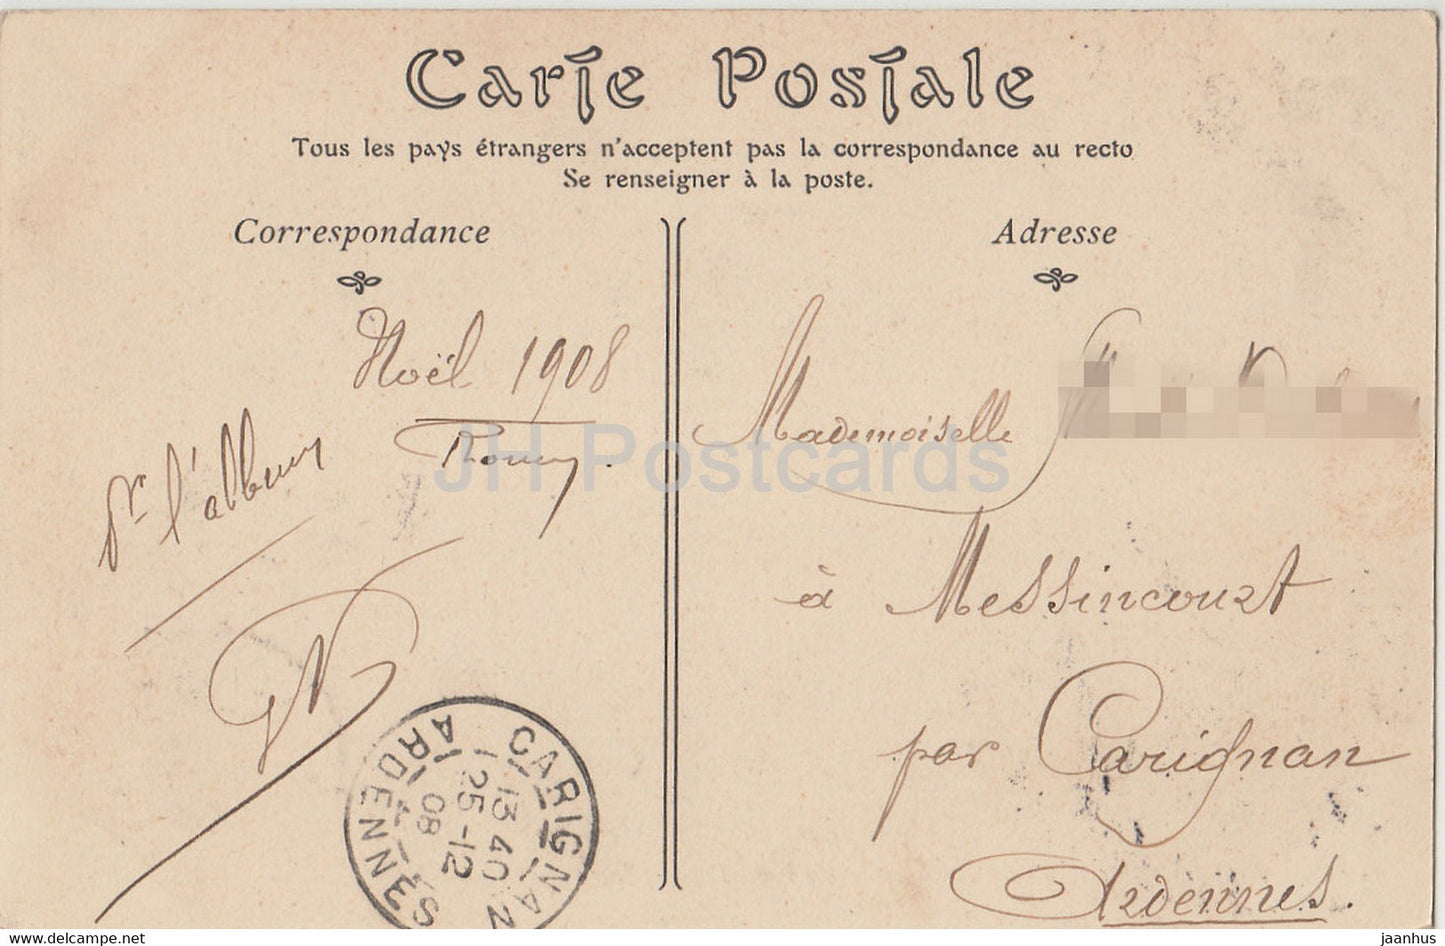 Carte Postale
Tous les pays étrangers n'acceptent pas la correspondance au recto
Se renseigner à la poste.
Correspondance
Adresse
Noël 1908
pr l'album
Mademoiselle
à Messincourt
par Carignan
Ardennes.
CARIGNAN
ARDENNES
13 40
25 -12
08
JH Postcards
www.hippostcard.com/store/jh-postcards
jaanhus